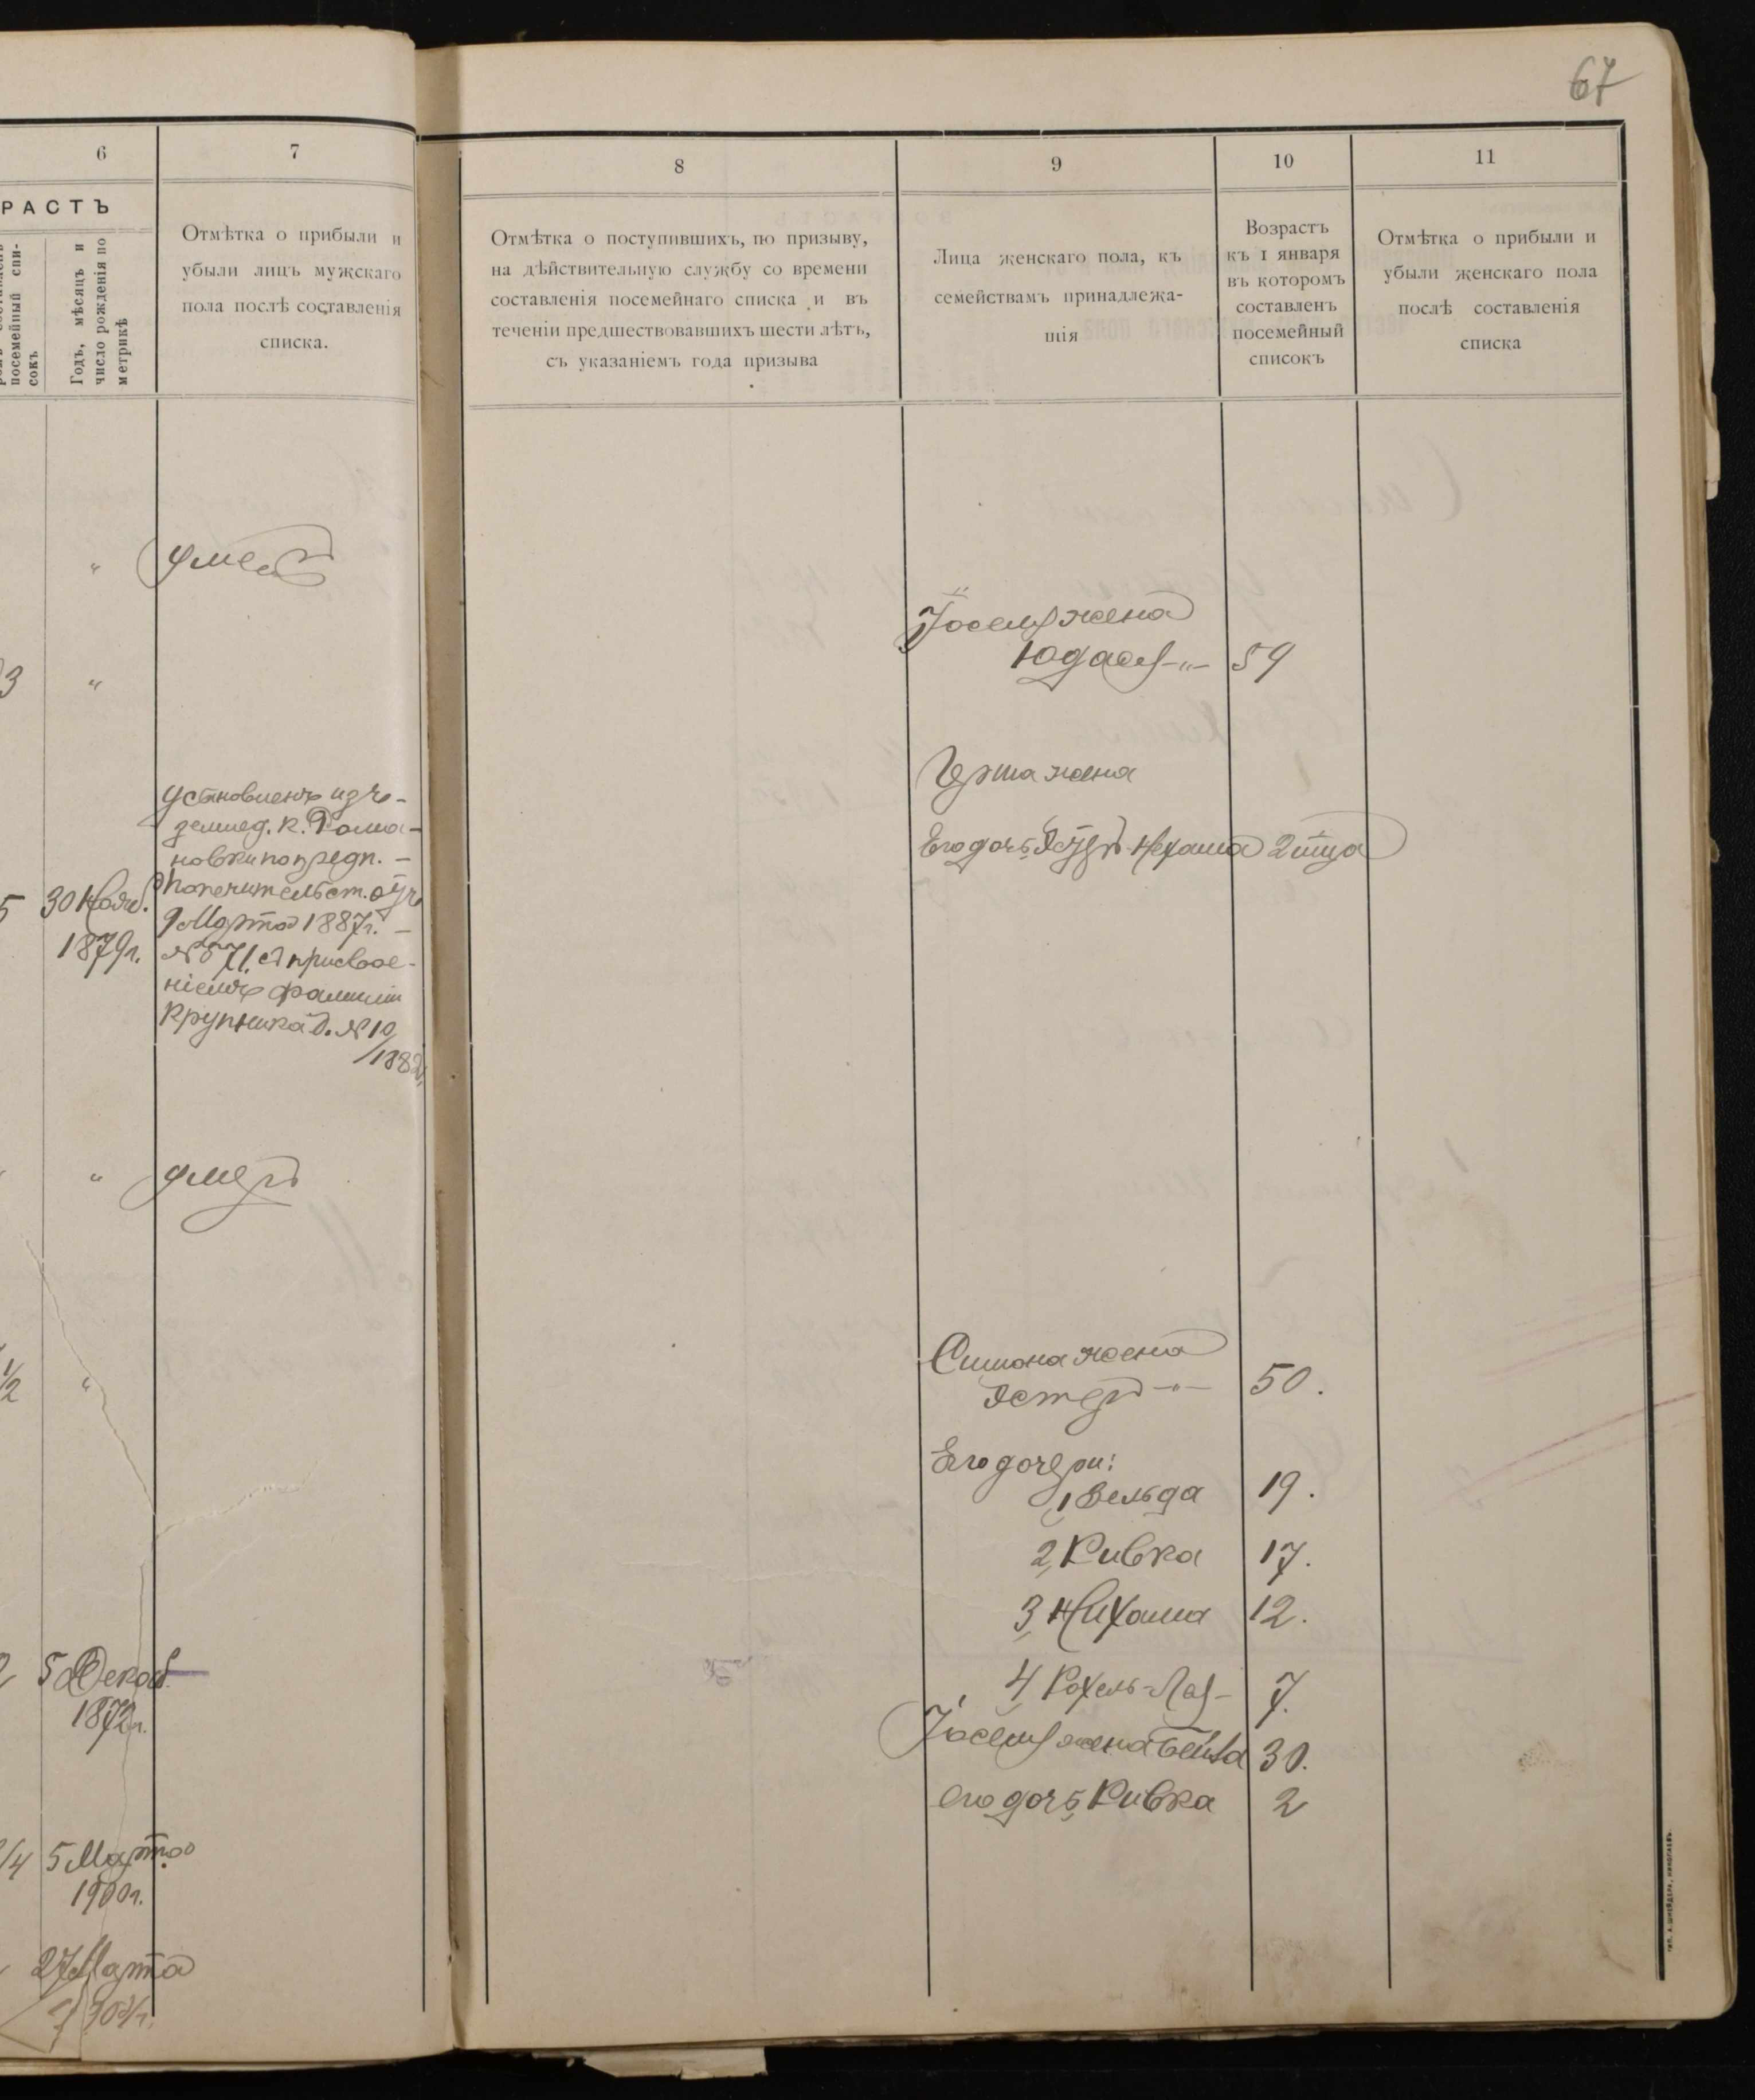 67
6
7
РАСТЪ
посемейный спи-
сокъ
Годъ, мѣсяцъ и
число рожденія по
метрикѣ
Отмѣтка о прибыли и
убыли лицъ мужскаго
пола послѣ составленія
списка.
8
9
10
11
Отмѣтка о поступившихъ, по призыву,
на дѣйствительную службу со времени
составленія посемейнаго списка и въ
теченіи предшествовавшихъ шести лѣтъ,
съ указаніемъ года призыва
Лица женскаго пола, къ
семействамъ принадлежа-
щія
Возрастъ
къ 1 января
въ которомъ
составленъ
посемейный
списокъ
Отмѣтка о прибыли и
убыли женскаго пола
послѣ составленія
списка
„ умеръ
3 „
5 30 Нояб.
1879 г.
Установленъ изъ
землед. к. Рома-
новки по предп. -
Попечительст. отъ
9 Марта 1887 г. -
№ 571, съ присвое-
ніемъ фамиліи
Крупника д. № 10
/1882
„ умеръ
1/2 „
2 5 Декаб.
1872 г.
/4 5 Марта
1900 г.
27 Марта
Іоселя жена
59
Герша жена
Его дочь Эстеръ-Нехама
Симона жена
Эстеръ -„- 50.
Его дочери:
1, Зельда 19.
2, Ривка 17.
3, Нихама 12.
4, Рохель-Лая- 7.
Іоселя жена Бейла 30.
его дочь, Ривка 2